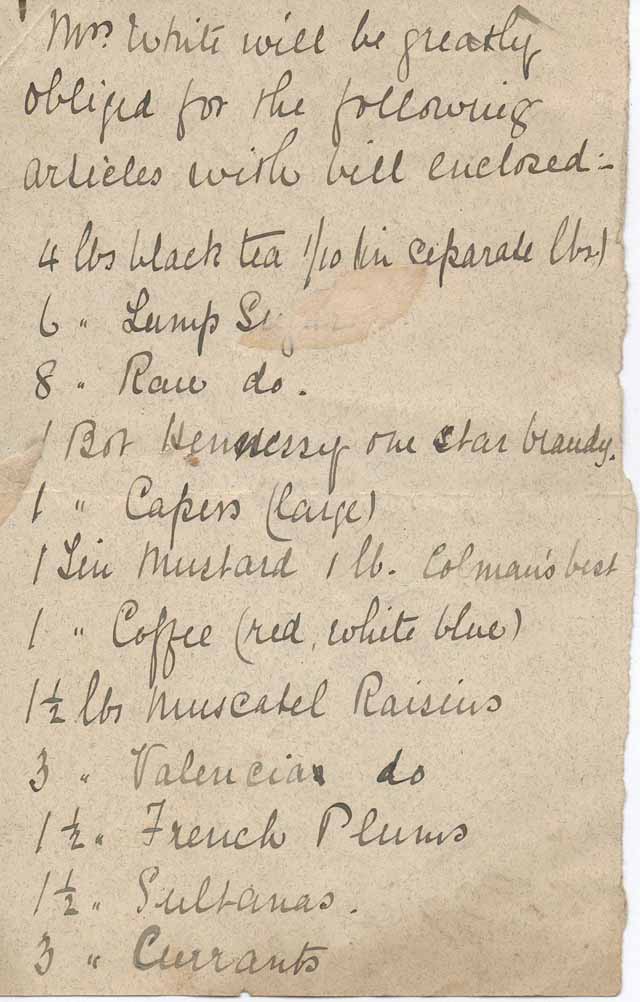 Mrs. White will be greatly
obliged for the following
articles with bill enclosed:-
4 lbs black tea 1/10 (in ceparate lbs.)
6 " Lump
8 " Raw do.
1 Bot Hennessy one star brandy.
1 " Capers (large)
1 Tin Mustard 1 lb. Colman's best
1 " Coffee (red, white blue)
1½ lbs Muscatel Raisins
3 " Valencias do
1½ " French Plums
1½ " Sultanas.
3 " Currants